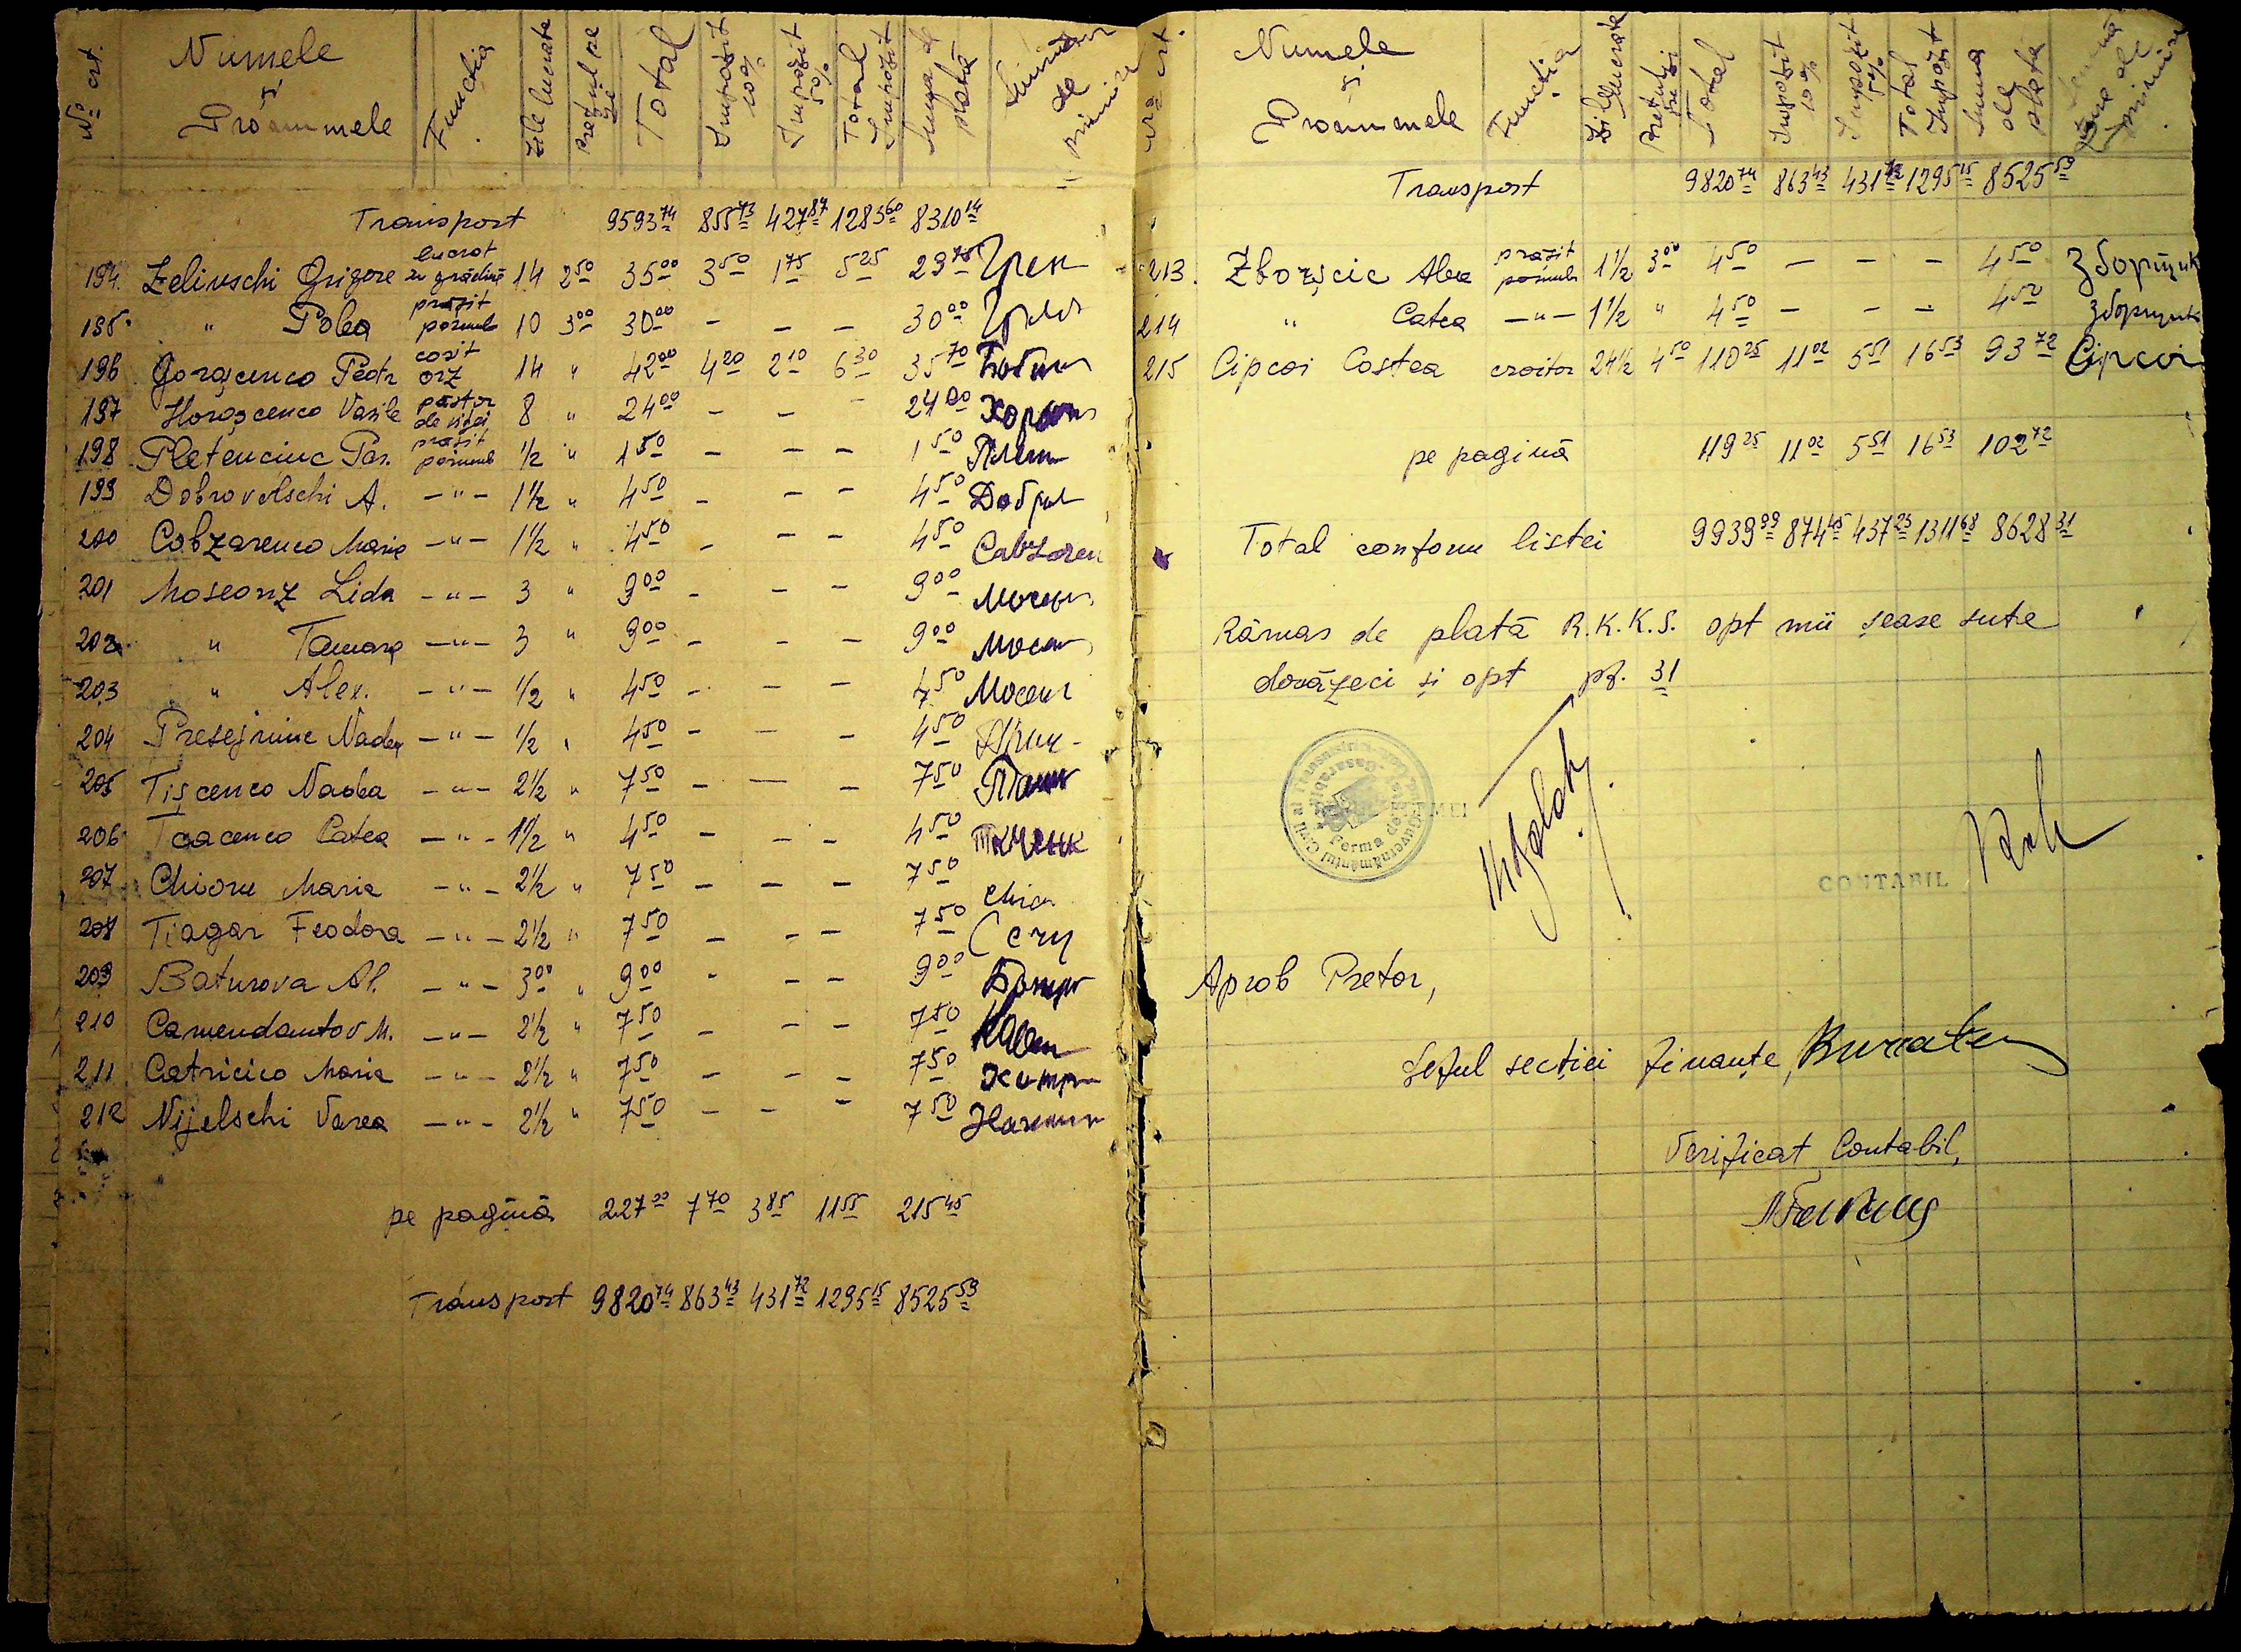 No crt. Numele și Pronumele Funcția Zile lucrate Prețul pe zi Total Impozit 10% Impozit 5% Total Impozit Suma de plată de primire
Transport 9593 74 855 73 427 87 1283 60 8310 14
194. Zelinschi Grigore lucrat la grădină 14 2 50 35 00 3 50 1 75 5 25 29 75
195. " Poba prășit porumb 10 3 00 30 00 - - - 30 00
196 Gorașcenco Petr cosit orz 14 " 42 00 4 20 2 10 6 30 35 70
197 Horașcenco Vasile păstor de viței 8 " 24 00 - - - 24 00
198 Pletenciuc Par. prășit porumb 1/2 " 1 50 - - - 1 50 Плетен
199 Dobrovolschi A. -"- 1 1/2 " 4 50 - - - 4 50 Доброл
200 Cobzarenco Maria -"- 1 1/2 " 4 50 - - - 4 50 Cabzaren
201 Moseonz Lida -"- 3 " 9 00 - - - 9 00
202 " Tamara -"- 3 " 9 00 - - - 9 00
203 " Alex. -"- 1/2 " 4 50 - - - 4 50
204 Presejniuc Nadea -"- 1/2 " 4 50 - - - 4 50
205 Tișcenco Nadea -"- 2 1/2 " 7 50 - - - 7 50
206 Tcacenco Catea -"- 1 1/2 " 4 50 - - - 4 50
207 Chioru Maria -"- 2 1/2 " 7 50 - - - 7 50 Chior
208 Tiagar Feodora -"- 2 1/2 " 7 50 - - - 7 50
209 Baturova Al. -"- 3 00 " 9 00 - - - 9 00
210 Camendantov M. -"- 2 1/2 " 7 50 - - - 7 50
211 Catricico Maria -"- 2 1/2 " 7 50 - - - 7 50
212 Nijelschi Varea -"- 2 1/2 " 7 50 - - - 7 50
pe pagină 227 00 7 70 3 85 11 55 215 45
Transport 9820 74 863 43 431 72 1295 15 8525 59
crt. Numele și Pronumele Funcția Zile lucrate Prețul zi Total Impozit 10% Impozit 5% Total Impozit Suma de plată de primire
Transport 9820 74 863 43 431 72 1295 15 8525 59
213. Zborșcic Alexa prășit porumb 1 1/2 3 00 4 50 - - - 4 50 Зборщик
214 " Catea -"- 1 1/2 " 4 50 - - - 4 50 Зборщик
215 Cipcoi Costea croitor 24 1/2 4 50 110 25 11 02 5 51 16 53 93 72 Cipcoi
pe pagină 119 25 11 02 5 51 16 53 102 72
Total conform listei 9939 99 874 45 437 23 1311 68 8628 31
Rămas de plată R.K.K.S. opt mii șease sute
douăzeci și opt pf. 31
Guvernământul Civil al Transnistriei
Ferma de
CONTABIL
Aprob Pretor,
Șeful secției finanțe,
Verificat Contabil,